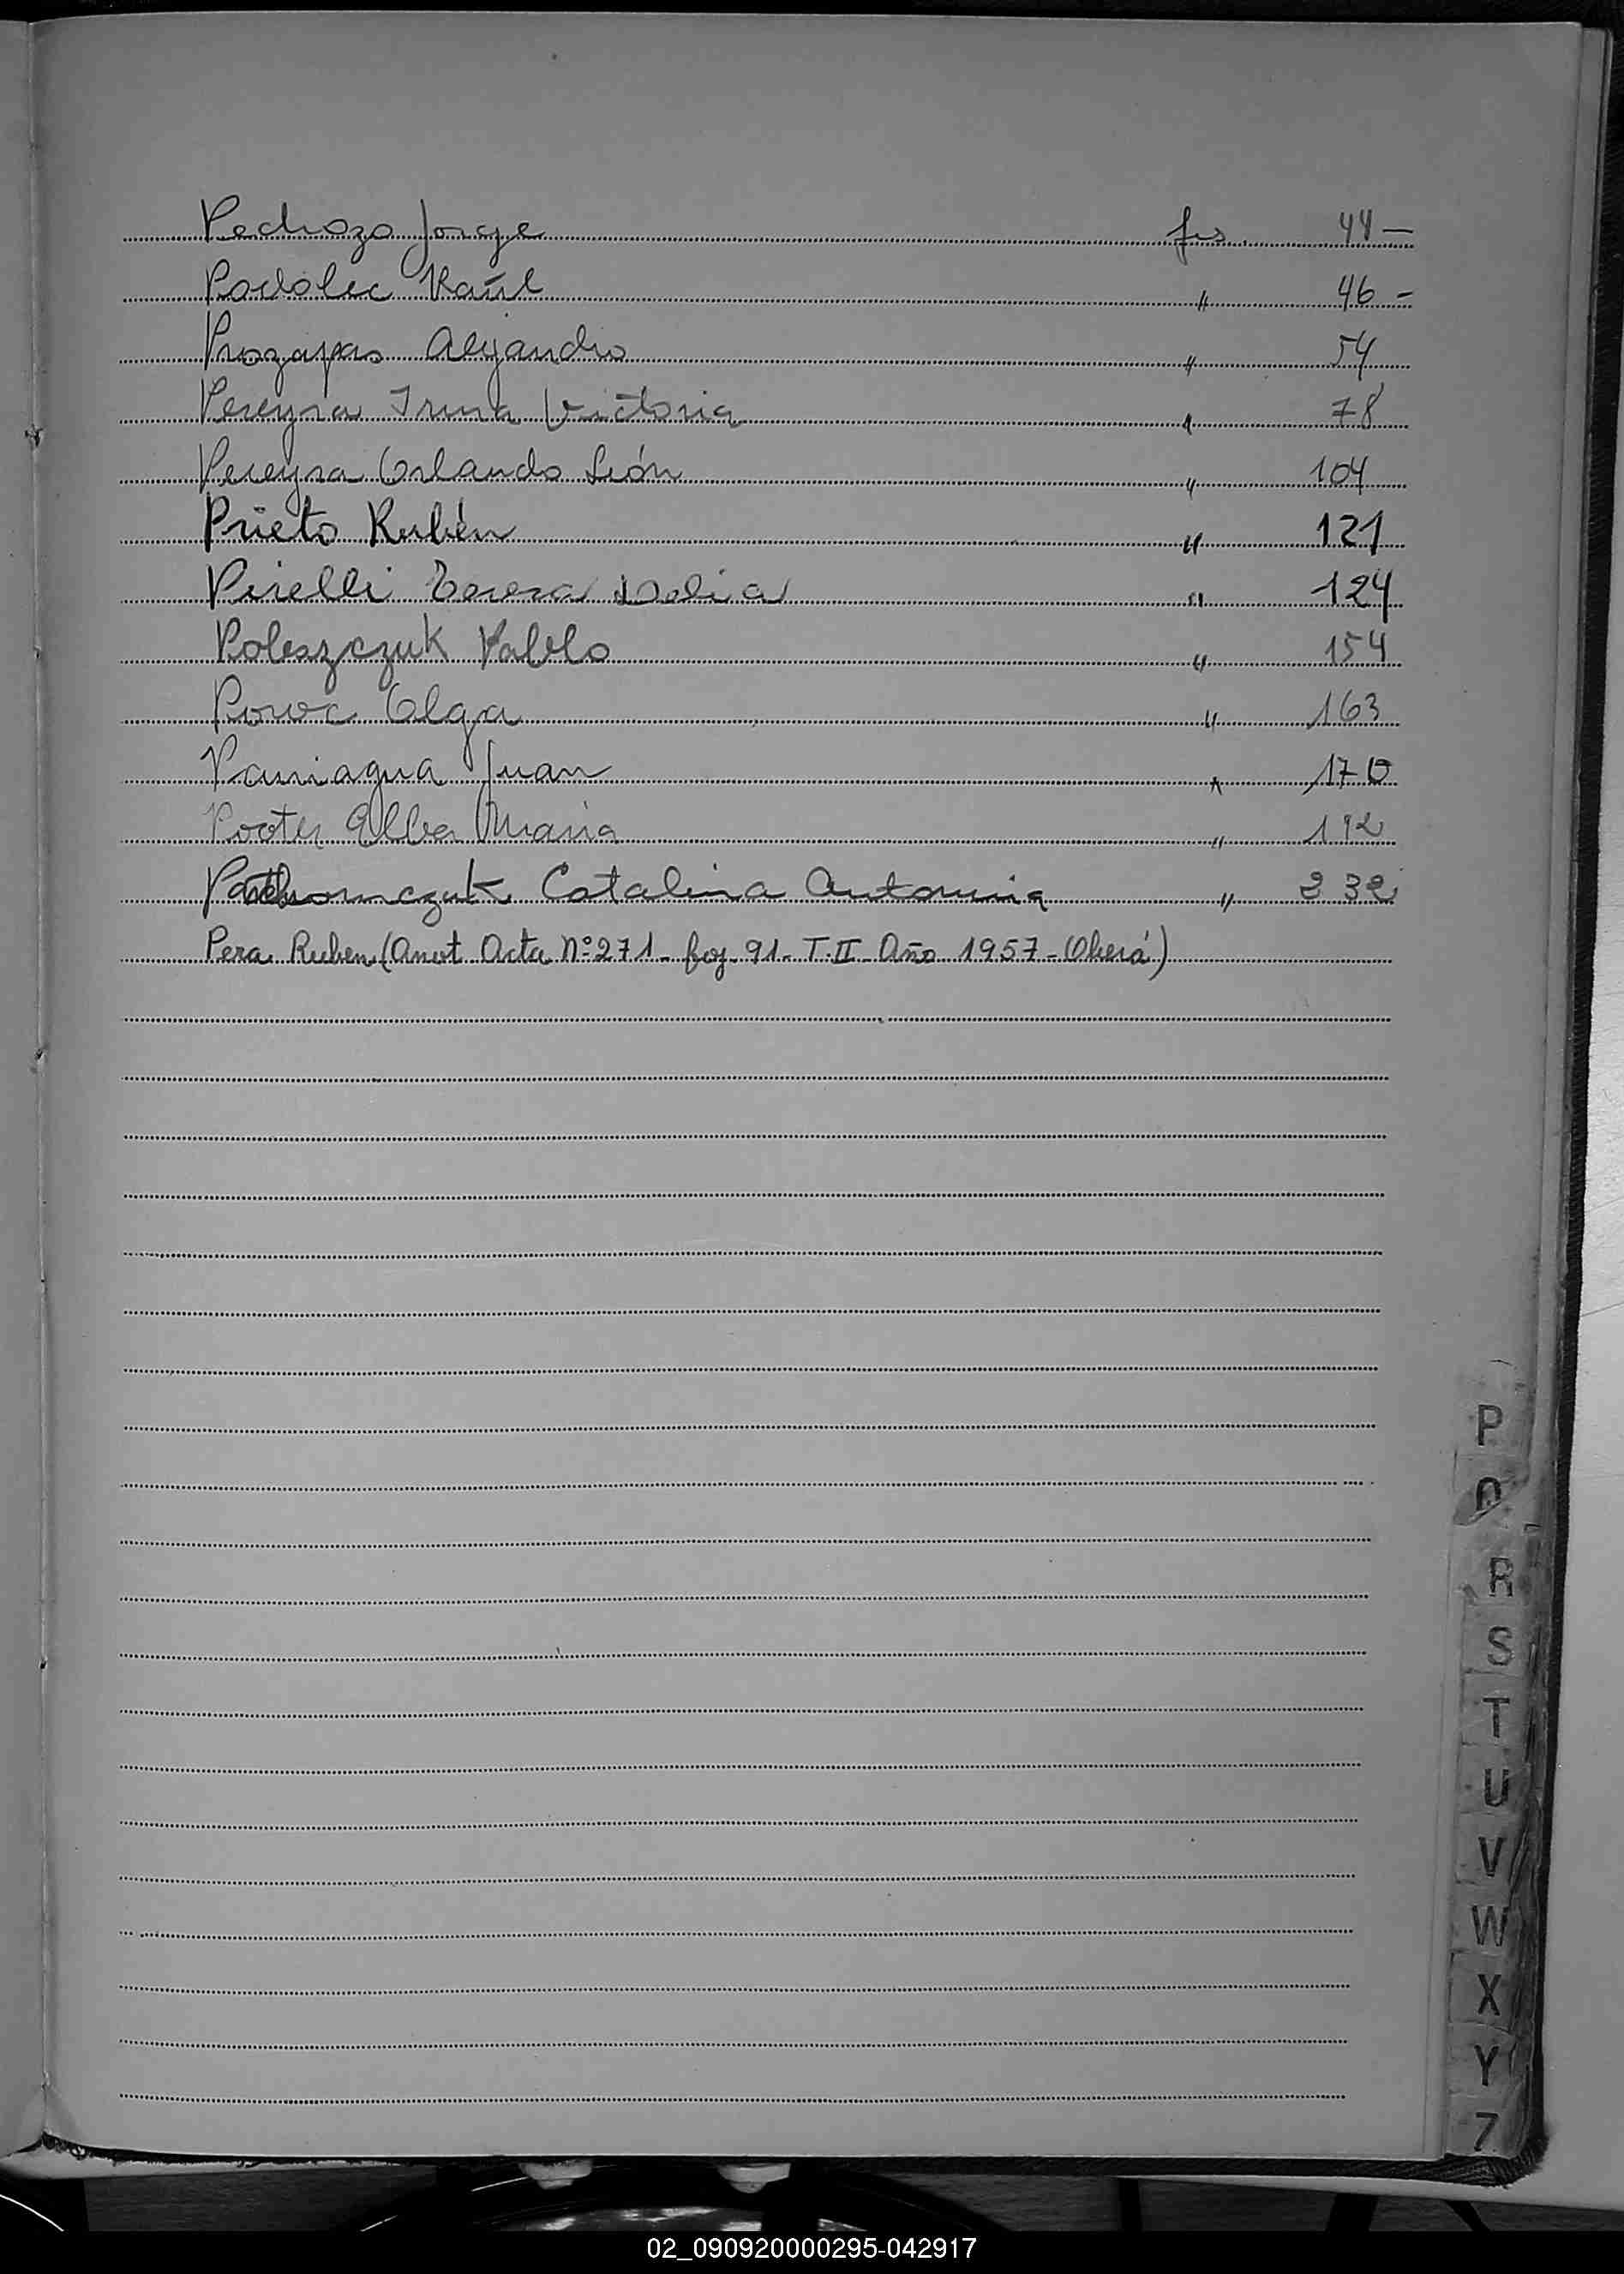 Pedrozo Jorge fs. 44 —
Podolec Raúl " 46 -
Prozapas Alejandro " 54
Pereyra Irma Victoria " 78
Pereyra Orlando León " 104
Prieto Rubén " 121
Pirelli Teresa Delia " 124
Poleszczuk Pablo " 154
Powoc Olga " 163
Paniagua Juan " 170
Elba María " 192
Catalina Antonia " 232
Pera Ruben (Anot. Acta Nº 271 - foj. 91 - T. II - Año 1957 - Oberá)
P
Q
R
S
T
U
V
W
X
Y
Z
02_090920000295-042917